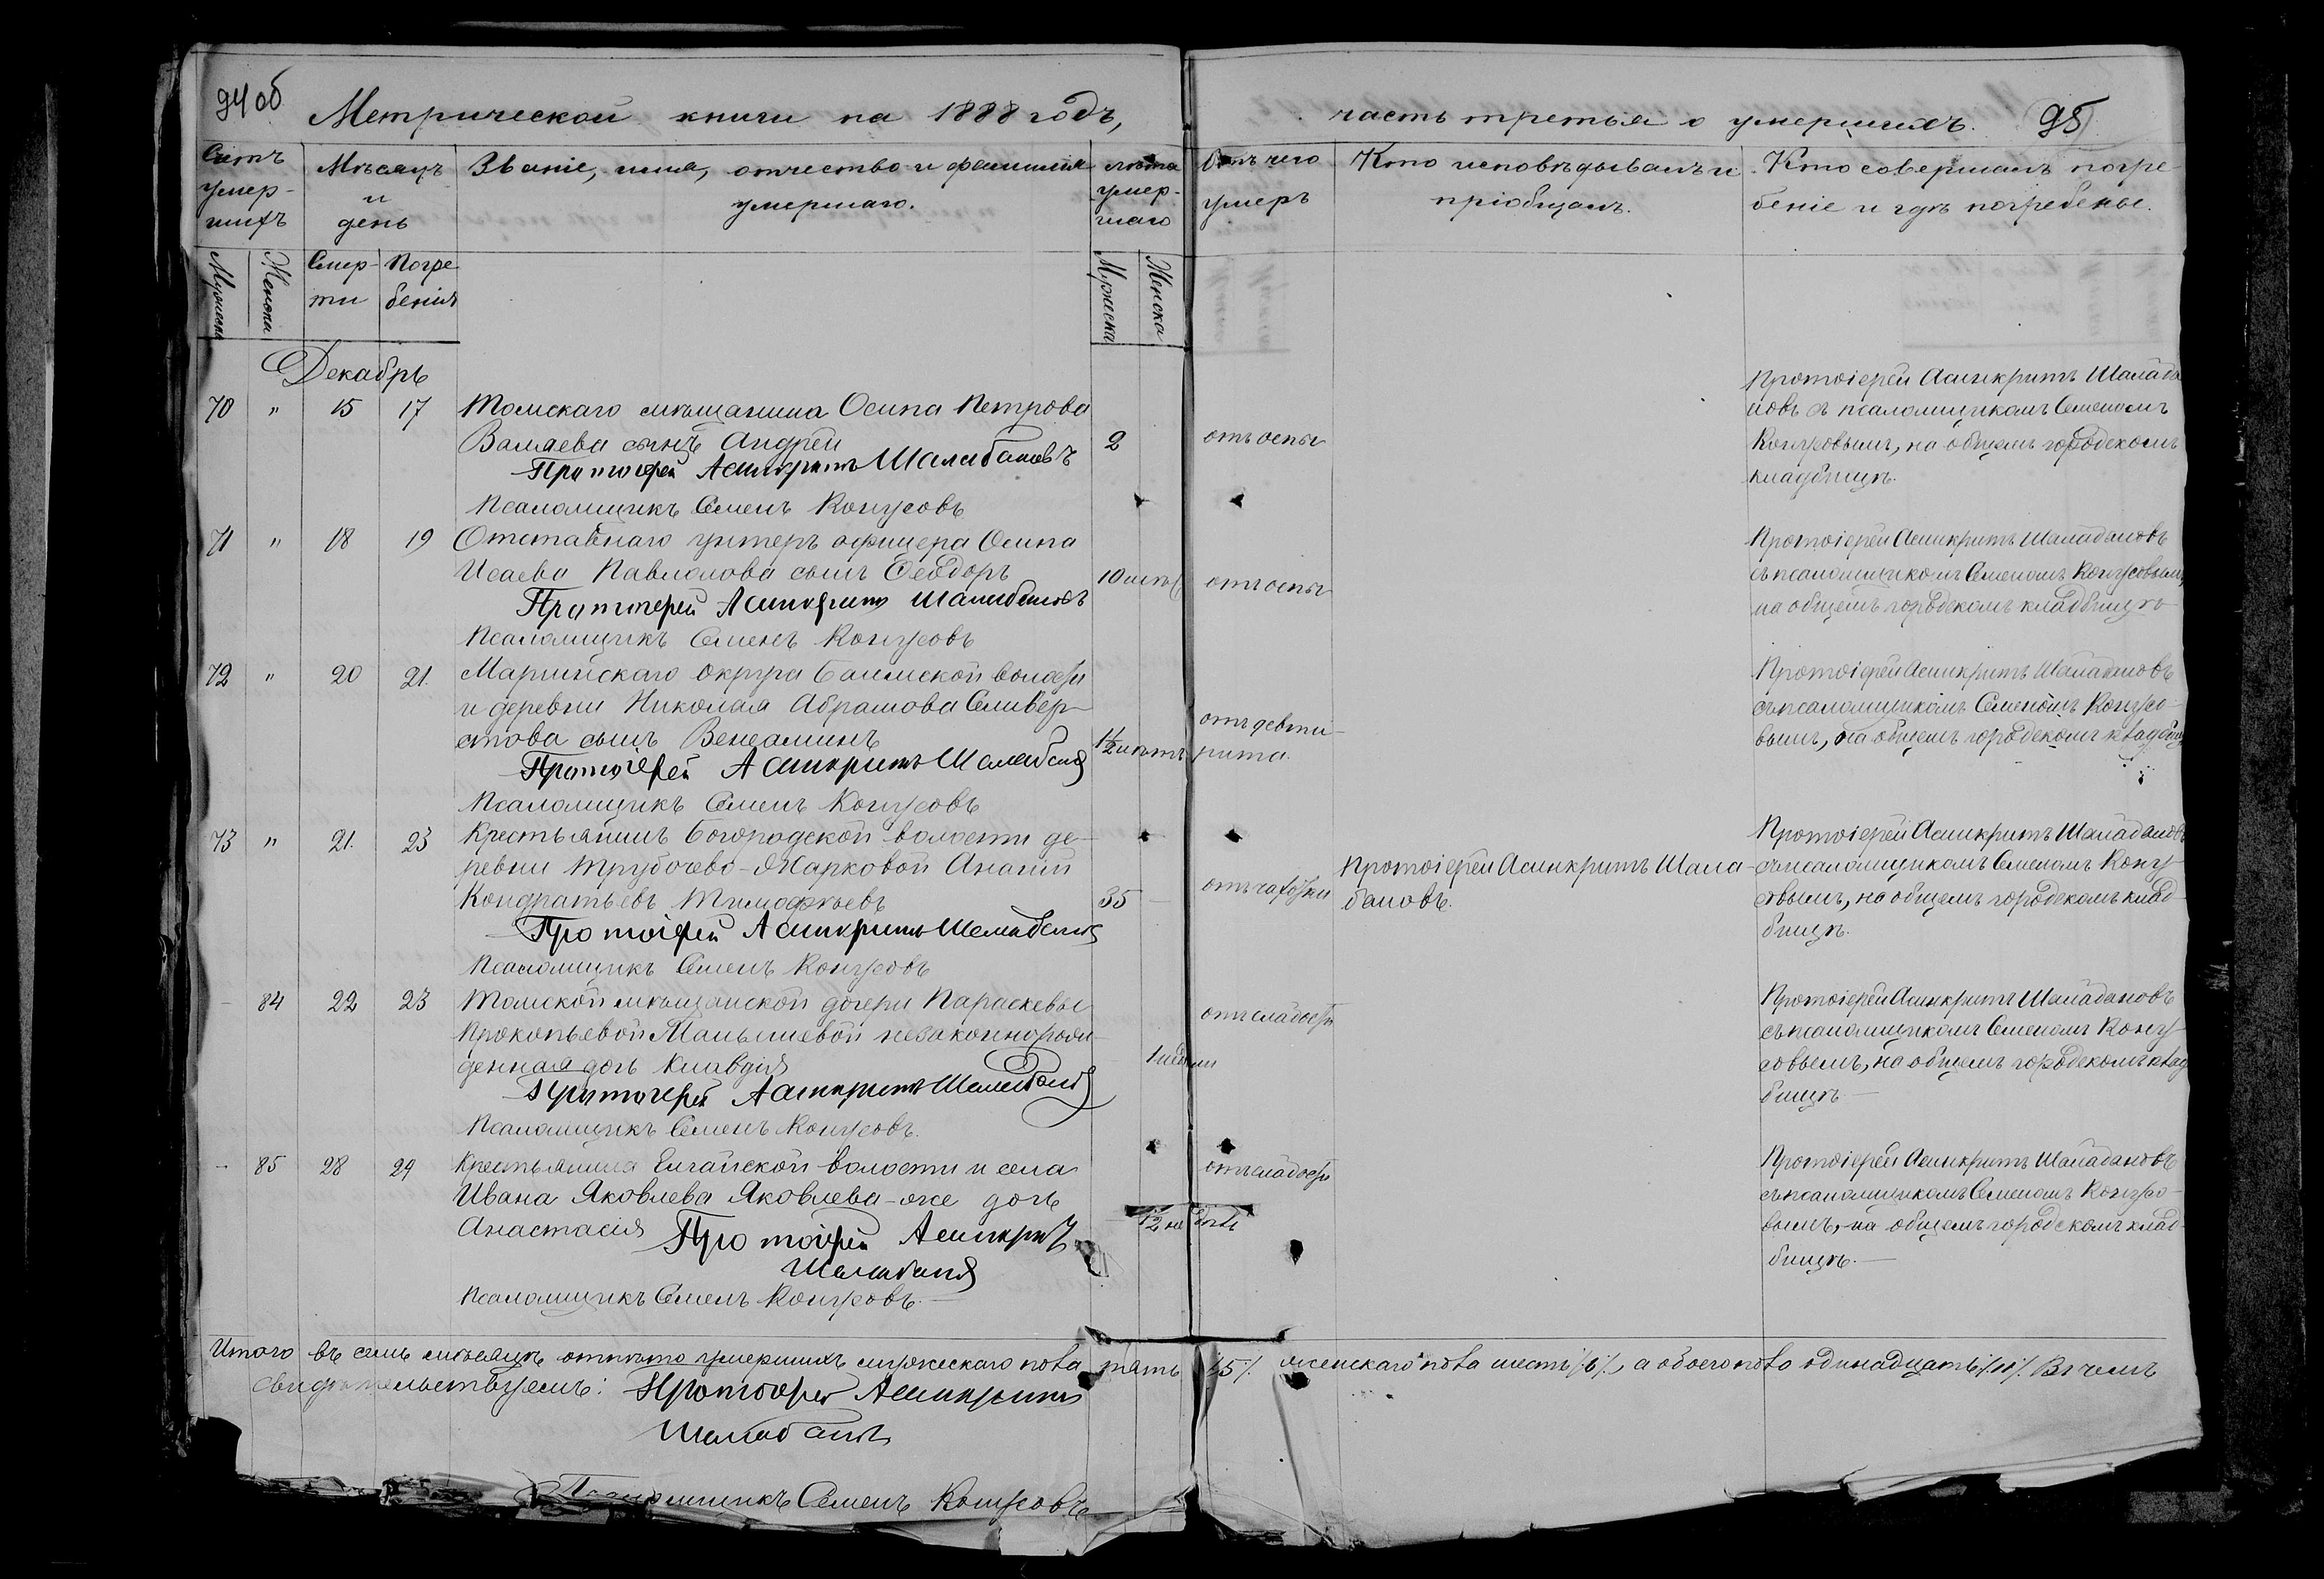 94 об
Метрической книги на 1888 годъ,
Счетъ умер-шихъ
Мѣсяцъ и день
Званіе, имя, отчество и фамилія умершаго.
лѣта умер-шаго
Мужеска
Женска
Смер-ти
Погре бенія
Мужеска
Женска
Декабрь
70 " 15 17 Томскаго мѣщанина Осипа Петрова
Валяева сынъ Андрей 2
Протоіерей Асинкритъ Шалабановъ
Псаломщикъ Семенъ Конусовъ
71 " 18 19 Отставнаго унтеръ офицера Осипа
Исаева сынъ Ѳеодоръ 10
Протоіерей Асинкритъ Шалабановъ
Псаломщикъ Семенъ Конусовъ
72 " 20 21. Маріинскаго округа Баимской волости
и деревни Николая Абрамова Сливер-
стова сынъ Веніаминъ 1½ лѣтъ
Протоіерей Асинкритъ Шалабановъ
Псаломщикъ Семенъ Конусовъ
73 " 21. 23 Крестьянинъ Богородской волости де-
ревни Трубочево-Жарковой Ананій
Кондратьевъ Тимофѣевъ 35
Протоіерей Асинкритъ Шалабановъ
Псаломщикъ Семенъ Конусовъ
- 84 22 23 Томской мѣщанской дочери Параскевы
Прокопьевой Малышевой незаконнорож-
денная дочь Клавдія
Протоіерей Асинкритъ Шалабановъ
Псаломщикъ Семенъ Конусовъ.
- 85 28 29 Крестьянина Елгайской волости и села
Ивана Яковлева Яковлева-же дочь
Анастасія Протоіерей Асинкритъ
Шалабановъ
Псаломщикъ Семенъ Конусовъ.
часть третья о умершихъ. 95
Отъ чего умеръ
Кто исповѣдывалъ и пріобщалъ.
Кто совершалъ погре беніе и гдѣ погребены.
Протоіерей Асинкритъ Шалаба
новъ съ псаломщикомъ Семеномъ
отъ оспы Конусовымъ, на общемъ городскомъ
кладбищѣ.
Протоіерей Асинкритъ Шалабановъ
съ псаломщикомъ Семеномъ Конусовымъ,
отъ оспы на общемъ городскомъ кладбищѣ
Протоіерей Асинкритъ Шалабановъ
съ псаломщикомъ Семеномъ Конусо-
отъ девти- вымъ, на общемъ городскомъ кладбищ
рита.
Протоіерей Асинкритъ Шалабановъ
Протоіерей Асинкритъ Шала- съ псаломщикомъ Семеномъ Кону-
отъ чахотки бановъ. совымъ, на общемъ городскомъ клад-
бищѣ.
Протоіерей Асинкритъ Шалабановъ
отъ слабости съ псаломщикомъ Семеномъ Кону-
совымъ, на общемъ городскомъ клад
бищѣ
Протоіерей Асинкритъ Шалабановъ
отъ слабости съ псаломщикомъ Семеномъ Конусо-
вымъ, на общемъ городскомъ клад-
бищѣ.
Итого въ семъ мѣсяцѣ отпѣто умершихъ мужескаго пола пять /5/. женскаго пола шесть /6/., а обоего пола одинадцать /11/. Въ чемъ
свидѣтельствуемъ: Протоіерей Асинкритъ
Шалабановъ
Псаломщикъ Семенъ Конусовъ